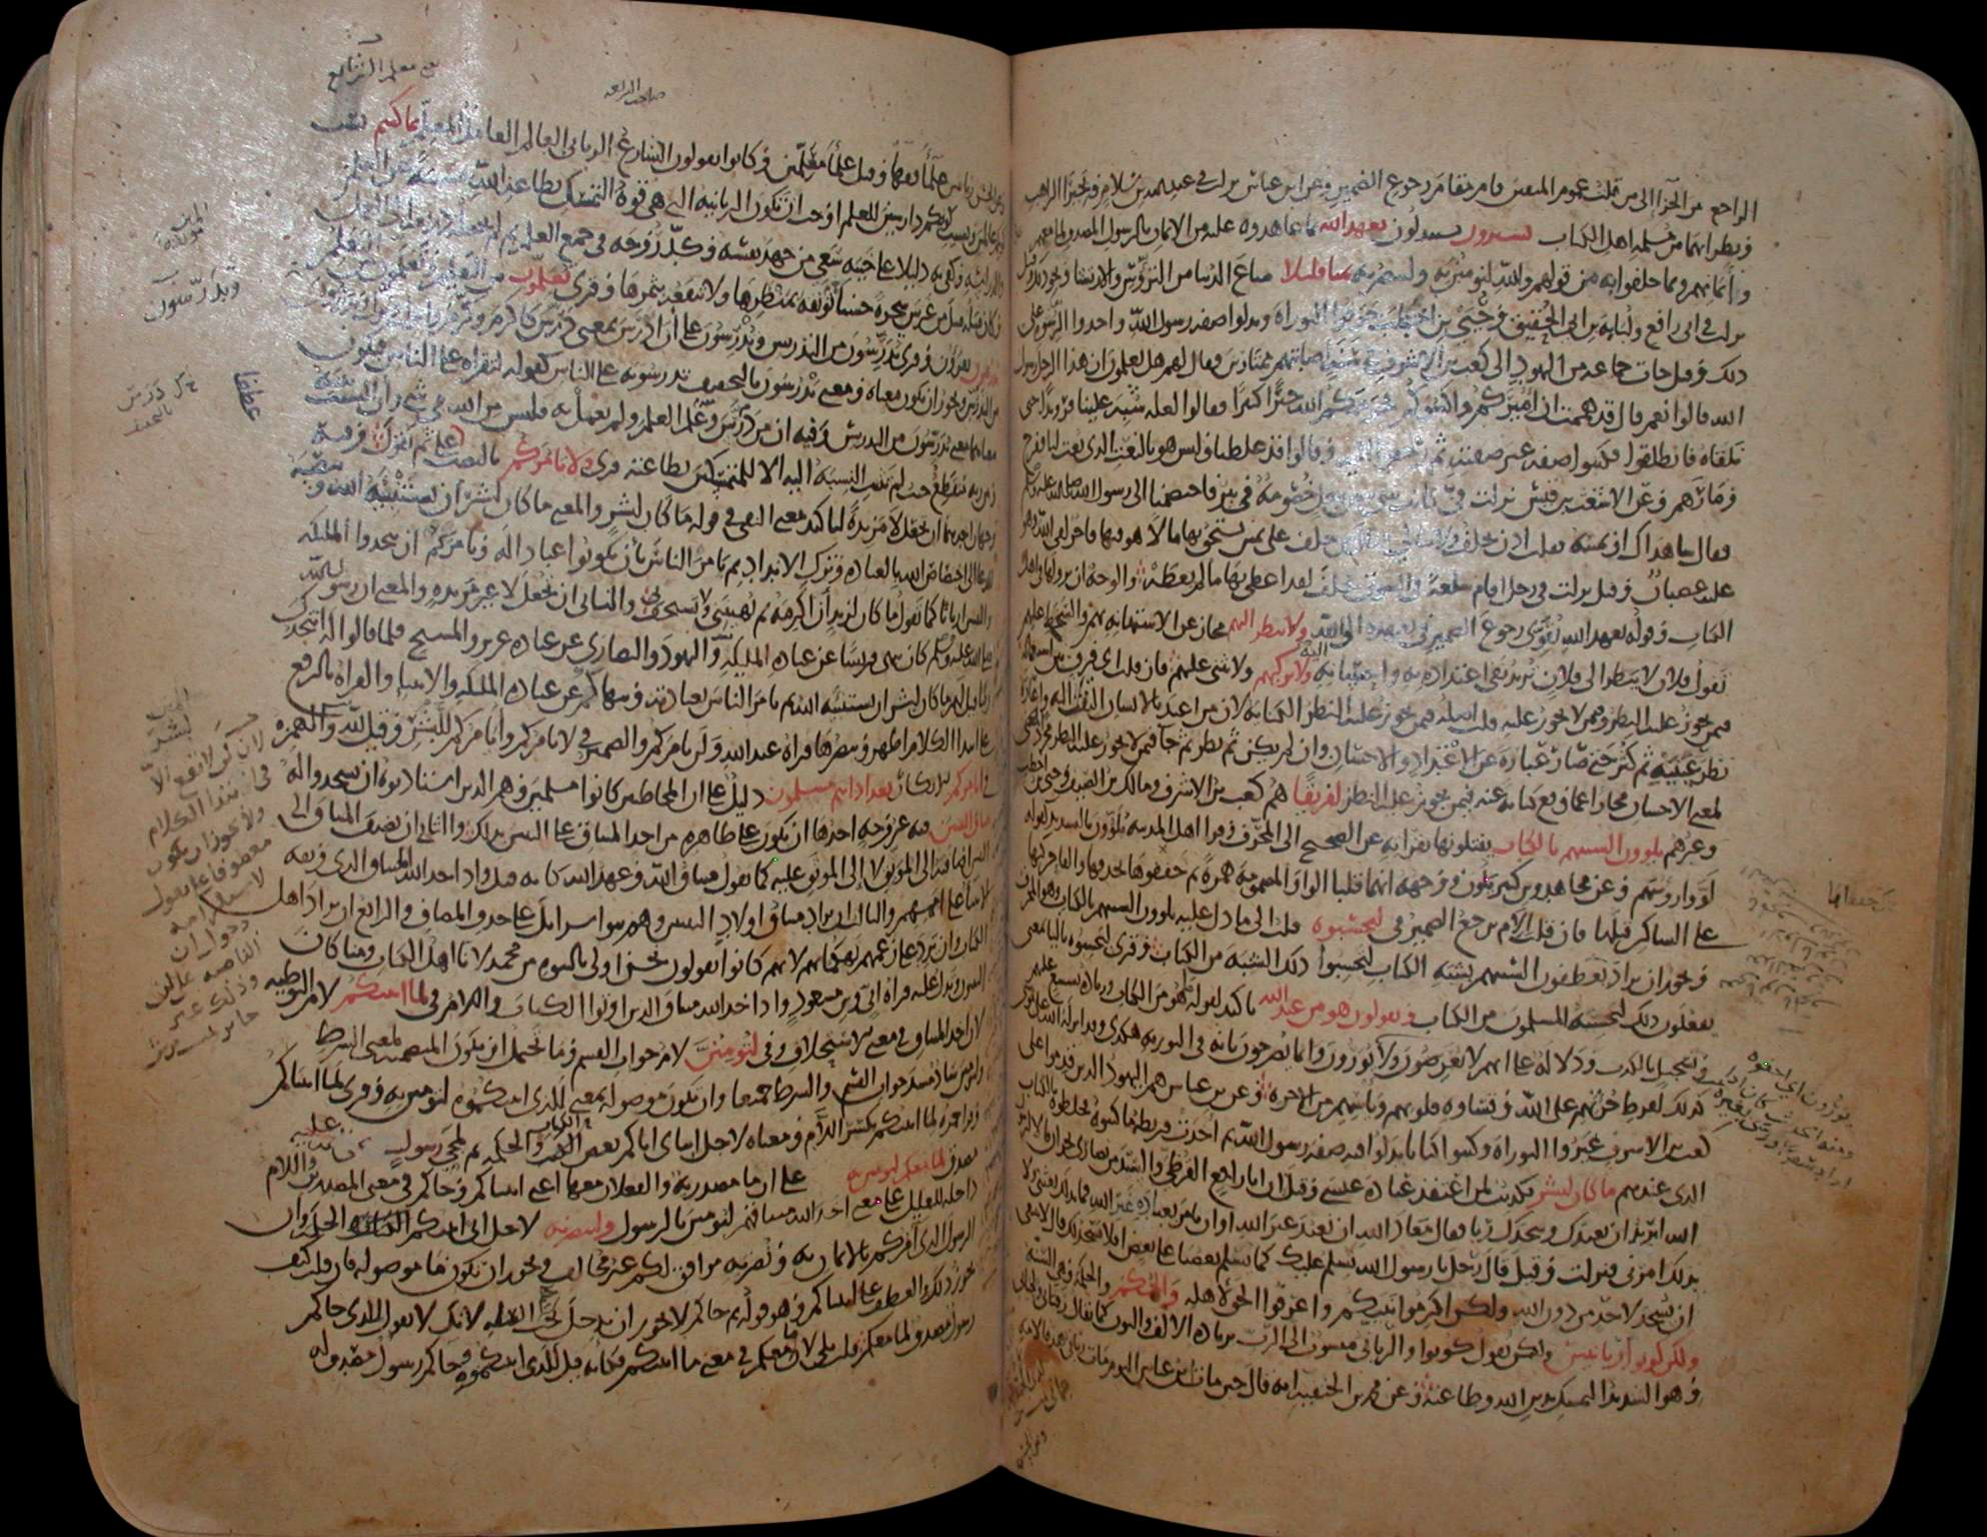 الراجع من الجزاء الى من قلت عموم المتقين قام مقام رجوع الضمير وعن ابن عباس نزلت في عبد الله بن سلام وبحيرا الراهب
ونظرائهما من مسلمة اهل الكتاب يشترون يستبدلون بعهد الله بما عاهدوه عليه من الايمان بالرسول المصدق لما معهم
وايمانهم وبما حلفوا به من قولهم والله لنؤمنن به ولننصرنه ثمنا قليلا متاع الدنيا من الترؤس والارتشاء ونحو ذلك وقيل
نزلت في ابي رافع ولبابة بن ابي الحقيق وحيي بن اخطب حرفوا التوراة وبدلوا صفة رسول الله واخذوا الرشوة على
ذلك وقيل جات جماعة من اليهود الى كعب بن الاشرف في سنة اصابتهم ممتارين فقال لهم هل تعلمون ان هذا الرجل رسول
الله قالوا نعم قال قد هممت ان اميركم واكسوكم فحرمكم الله خيرا كثيرا فقالوا لعله شبه علينا فرويدا حتى
نلقاه فانطلقوا فكتبوا صفة غير صفته ثم رجعوا اليه وقالوا قد غلطنا وليس هو بالنعت الذي نعت لنا ففرح
ومارهم وعن الاشعث بن قيس نزلت في كانت بيني وبين رجل خصومة في بير فاختصمنا الى رسول الله صلى الله عليه وسلم
فقال شاهداك او يمينه فقلت اذن يحلف ولا يبالي فقال من حلف على يمين يستحق بها مالا هو فيها فاجر لقي الله وهو
عليه غضبان وقيل نزلت في رجل اقام سلعة في السوق فحلف لقد اعطي بها ما لم يعطه والوجه ان نزولها في اهل
الكتاب وقوله بعهد الله يقوي رجوع الضمير في بعهده الى الله ولا ينظر اليهم مجاز عن الاستهانة بهم والسخط عليهم
تقول فلان لا ينظر الى فلان تريد نفي اعتداده به واحسانه اليه ولا يزكيهم ولا يثني عليهم فان قلت اي فرق بين استعماله
فيمن يجوز عليه النظر وفيمن لا يجوز عليه قلت اصله فيمن يجوز عليه النظر الكناية لان من اعتد بالانسان التفت اليه واعاره
نظر عينيه ثم كثر حتى صار عبارة عن الاعتداد والاحسان وان لم يكن ثم نظر ثم جا فيمن لا يجوز عليه النظر مجردا
لمعنى الاحسان مجازا عما وقع كناية عنه فيمن يجوز عليه النظر لفريقا هم كعب بن الاشرف ومالك بن الصيف وحيي بن اخطب
وغيرهم يلوون السنتهم بالكتاب يفتلونها بقراته عن الصحيح الى المحرف وقرا اهل المدينة يلوون بالتشديد كقوله
لووا رؤسهم وعن مجاهد وبن كثير يلون ووجهه انهما قلبا الواو المضمومة همزة ثم خففوها بحذفها والقا حركتها
على الساكن قبلها فان قلت الام يرجع الضمير في لتحسبوه قلت الى ما دل عليه يلوون السنتهم بالكتاب وهو المحرف
ويجوز ان يراد يعطفون السنتهم بشبه الكتاب لتحسبوا ذلك الشبه من الكتاب وقرى ليحسبوه باليا بمعنى
يفعلون ذلك ليحسبه المسلمون من الكتاب ويقولون هو من عند الله تاكيد لقوله هو من الكتاب وزيادة تشنيع عليهم
وتسجيل بالكذب ودلالة على انهم لا يعرضون ولا يورون وانما يصرحون بانه في التورية هكذا وقد انزله الله على موسى
كذلك لفرط جراتهم على الله وقساوة قلوبهم وياسهم من الاخرة وعن بن عباس هم اليهود الذين قدموا على
كعب بن الاشرف غيروا التوراة وكتبوا كتابا بدلوا فيه صفة رسول الله ثم اخذت قريظة ما كتبوه فخلطوه بالكتاب
الذي عندهم ما كان لبشر تكذيب لمن اعتقد عبادة عيسى وقيل ان ابا رافع القرظي والسيد من نصارى نجران قالا لرسول
الله اتريد ان نعبدك ونتخذك ربا فقال معاذ الله ان نعبد غير الله او ان نامر بعبادة غير الله فما بذلك بعثني ولا
بذلك امرني فنزلت وقيل قال رجل يا رسول الله نسلم عليك كما يسلم بعضنا على بعض افلا نسجد لك قال لا ينبغي
ان يسجد لاحد من دون الله ولكن اكرموا نبيكم واعرفوا الحق لاهله والحكم والحكمة وهي السنة
ولكن كونوا ربانيين ولكن يقول كونوا والرباني منسوب الى الرب بزيادة الالف والنون كما يقال رقباني ولحياني
وهو الشديد التمسك بدين الله وطاعته وعن محمد بن الحنفية انه قال حين مات ابن عباس اليوم مات رباني هذه الامة
وعن الحسن ربانيين علما فقها وقيل علما معلمين وكانوا يقولون الشارع الرباني العالم العامل المعلم بما كنتم بسبب
كونكم عالمين وبسبب كونكم دارسين للعلم اوجب ان تكون الربانية التي هي قوة التمسك بطاعة الله مسببة عن العلم
والدراسة وكفى به دليلا على خيبة سعي من جهد نفسه وكد روحه في جمع العلم ثم لم يجعله ذريعة الى العمل
فكان مثله مثل من غرس شجرة حسنا تونقه بمنظرها ولا تنفعه بثمرها وقرى تعلمون من التعليم وتعلمون من التعلم
تدرسون تقرؤن وقرى تدرسون من التدريس وتدرسون على ان ادرس بمعنى درس كاكرم وكرم
من التدريس ويجوز ان يكون معناه ومعنى تدرسون بالتخفيف تدرسونه على الناس كقوله لتقراه على الناس فيكون
معناهما معنى تدرسون من التدريس وفيه ان من درس وعلم العلم ولم يعمل به فليس من الله في شي وان السبب بينه
وبين ربه منقطع حيث لم يثبت النسبة اليه الا للمتمسكين بطاعته قرى ولا يامركم بالنصب على ثم يقول وفيه
وجهان احدهما ان تجعل لا مزيدة لتاكيد معنى النفي في قوله ما كان لبشر والمعنى ما كان لبشر ان يستنبئه الله وينصبه
للدعا الى اختصاص الله بالعبادة وترك الانداد ثم يامر الناس بان يكونوا عبادا له ويامركم ان تتخذوا الملئكة
والنبيين اربابا كما تقول ما كان لزيد ان اكرمه ثم يهينني ولا يستخف بي والثاني ان تجعل لا غير مزيدة والمعنى ان رسول الله
صلى الله عليه وسلم كان ينهى قريشا عن عبادة الملئكة واليهود والنصارى عن عبادة عزير والمسيح فلما قالوا له انتخذك
ربا قيل لهم ما كان لبشر ان يستنبئه الله ثم يامر الناس بعبادته وينهاكم عن عبادة الملئكة والانبيا والقراة بالرفع
على ابتدا الكلام اظهر وتنصرها قراة عبد الله ولن يامركم والضمير في لا يامركم وايامركم للبشر وقيل لله والهمزة
في ايامركم للانكار بعد اذ انتم مسلمون دليل على ان المخاطبين كانوا مسلمين وهم الذين استاذنوه ان يسجدوا له
ميثاق النبيين فيه غير وجه احدها ان يكون على ظاهره من اخذ الميثاق على النبيين بذلك والثاني ان يضيف الميثاق الى
النبيين اضافته الى الموثق لا الى الموثق عليه كما تقول ميثاق الله وعهد الله كانه قيل واذ اخذ الله الميثاق الذي وثقه
الانبيا على اممهم والثالث ان يراد ميثاق اولاد النبيين وهم بنوا اسرائيل على حذف المضاف والرابع ان يراد اهل
الكتاب وان يرد على زعمهم تهكما بهم لانهم كانوا يقولون نحن اولى بالنبوة من محمد لانا اهل الكتاب ومنا كان
النبيون وتدل عليه قراة ابي وبن مسعود واذ اخذ الله ميثاق الذين اوتوا الكتاب واللام في لما اتيتكم لام التوطية
لان اخذ الميثاق في معنى الاستحلاف وفي لتؤمنن لام جواب القسم وما تحتمل ان تكون المتضمنة لمعنى الشرط
ولتؤمنن ساد مسد جواب القسم والشرط جميعا وان تكون موصولة بمعنى للذي اتيتكموه لتؤمنن به وقرى لما اتيناكم
وقرا حمزة لما اتيتكم بكسر اللام ومعناه لاجل ايتاي اياكم بعض الكتاب والحكمة ثم لمجي رسول
مصدق لما معكم لتؤمنن به على ان ما مصدرية والفعلان معها اعني اتيتكم وجاكم في معنى المصدرين واللام
داخلة للتعليل على معنى اخذ الله ميثاقهم لتؤمنن بالرسول ولتنصرنه لاجل اني اتيتكم الحكمة وان
الرسول الذي امركم بالايمان به ونصرته موافق لكم غير مخالف ويجوز ان تكون ما موصولة فان قلت كيف
يجوز ذلك والعطف على اتيتكم وهو قوله ثم جاكم لا يجوز ان يدخل تحت الصلة لانك لا تقول للذي جاكم
رسول مصدق لما معكم قلت بلى لان ما معكم في معنى ما اتيتكم فكانه قيل للذي اتيتكموه وجاكم رسول مصدق له